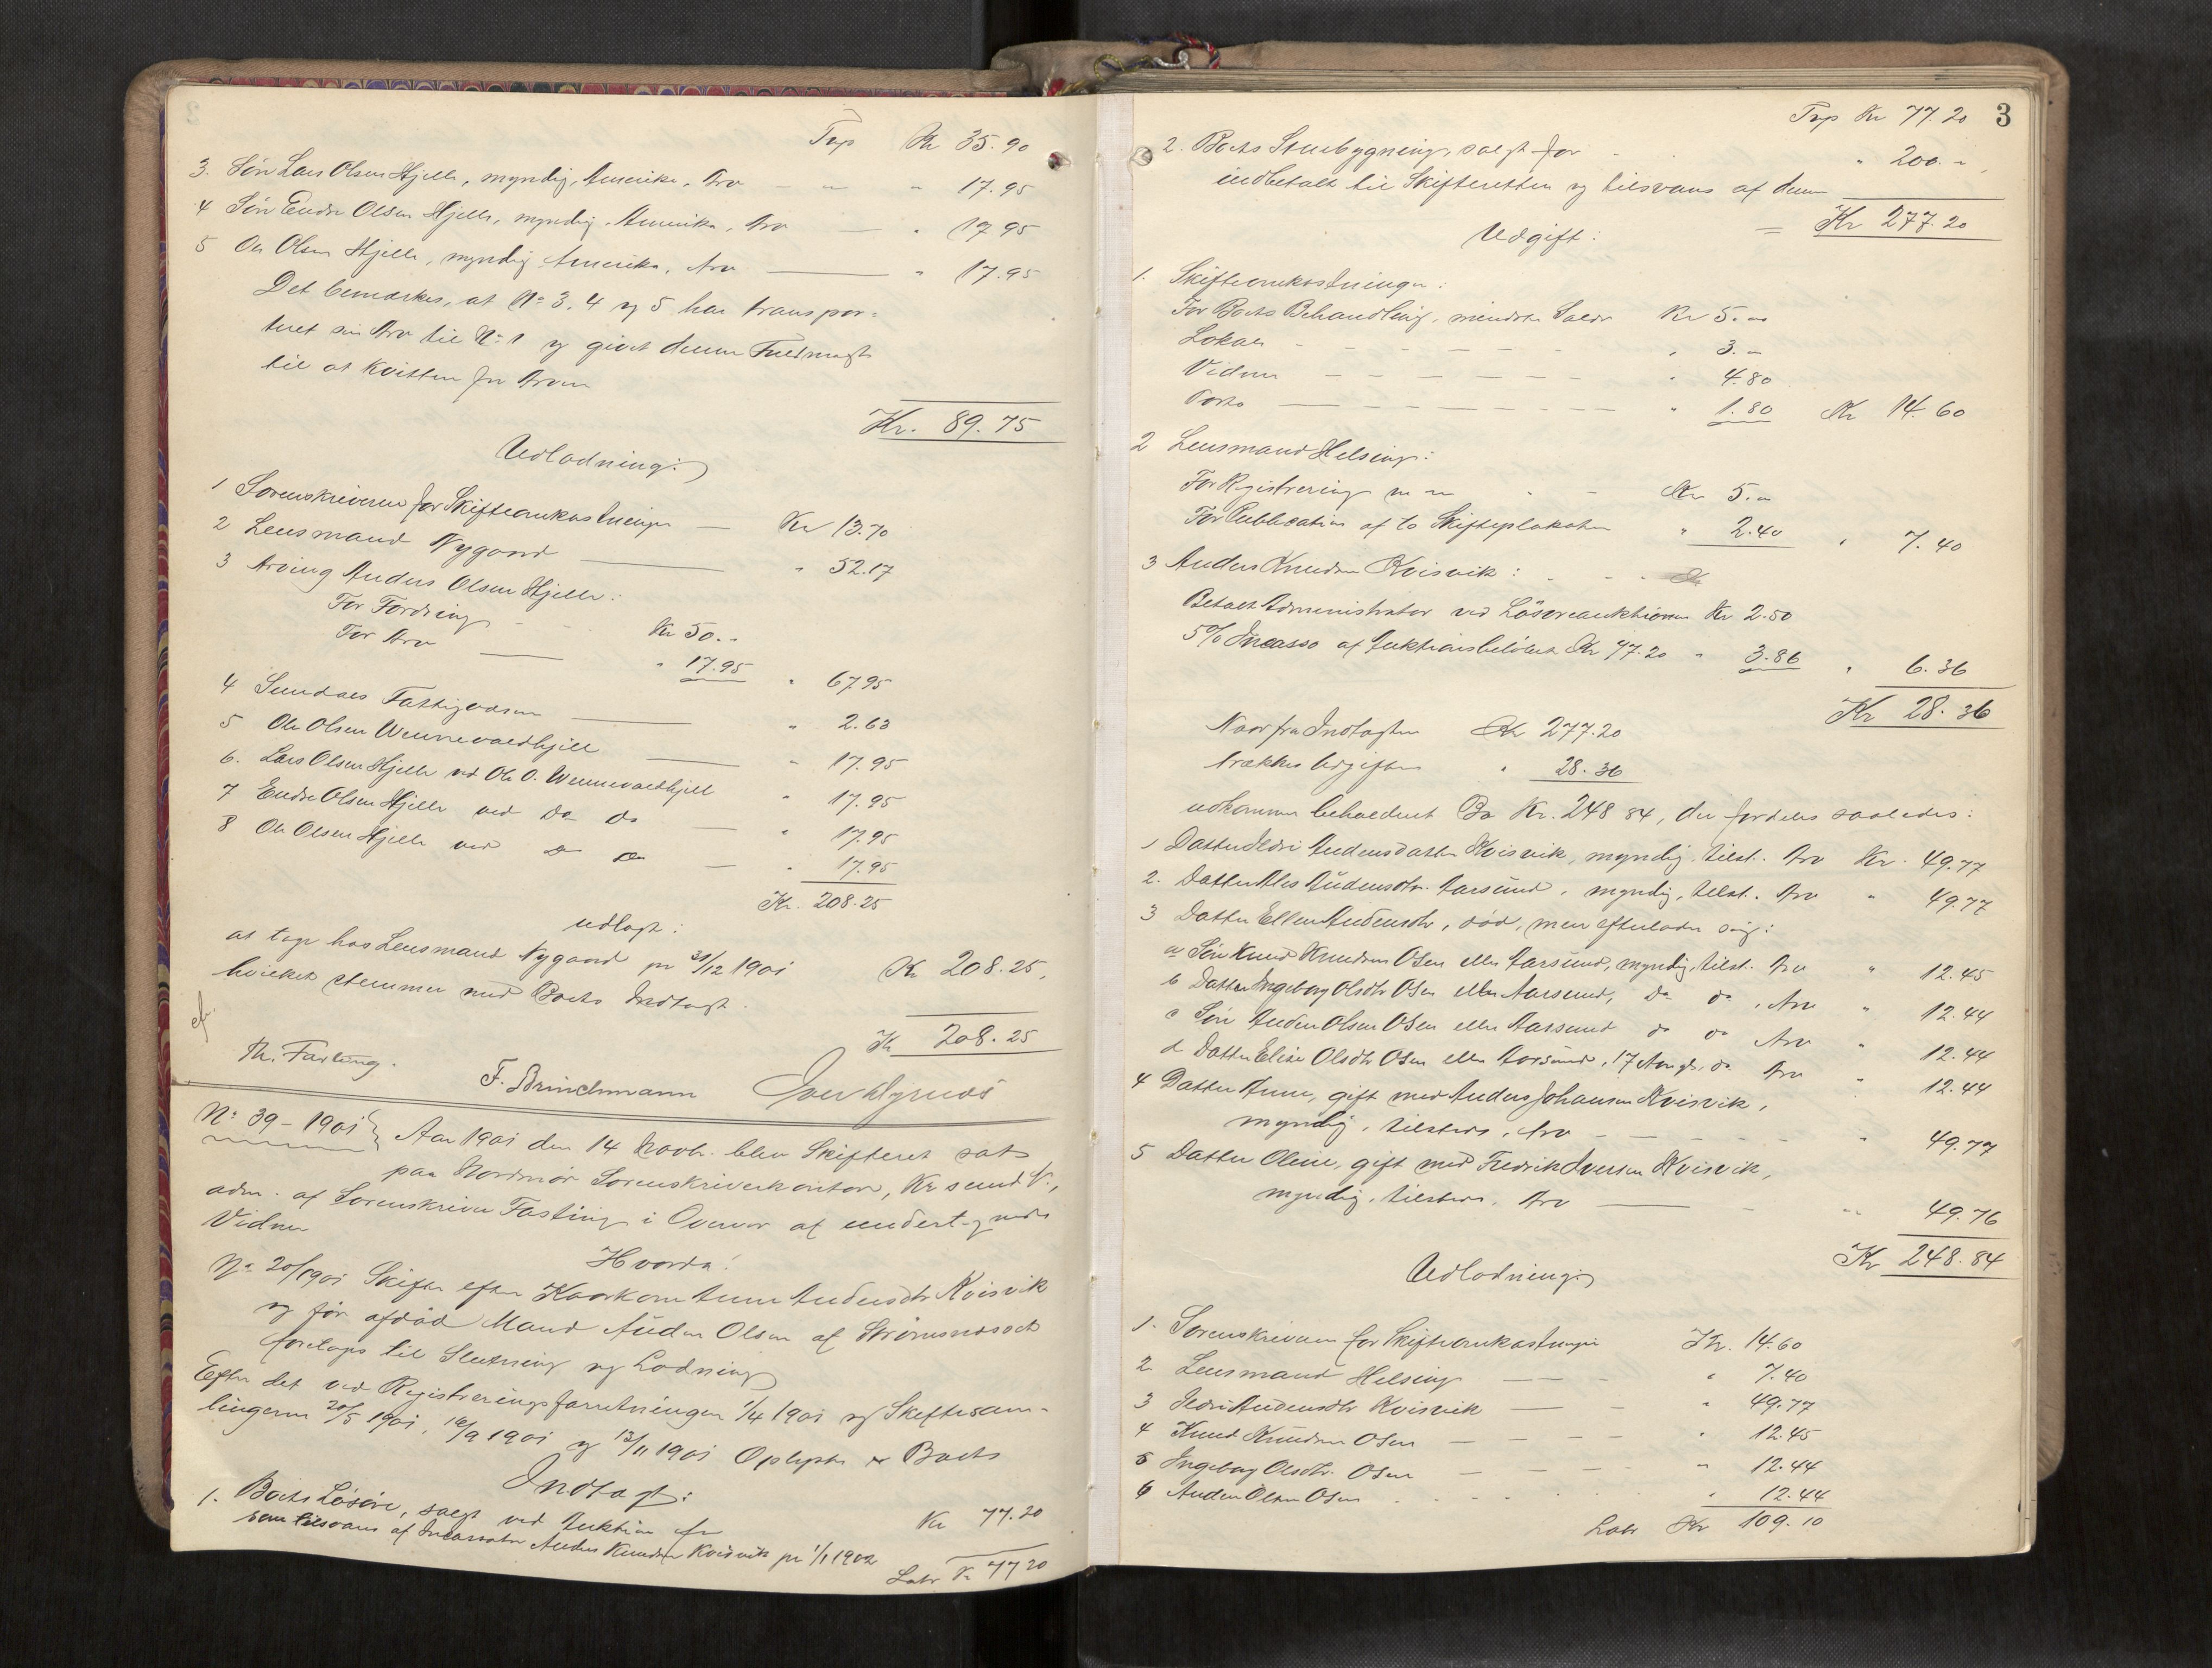 Trp Kr 35.90
3. Søn Lars Olsen Hjelle, myndig, Amerika, Arv — " 17.95
4 Søn Endre Olsen Hjelle, myndig, Amerika, Arv — " 17.95
5 Ole Olsen Hjelle, myndig Amerika, Arv — " 17.95
Det bemærkes, at No 3, 4 og 5 har transpor-
teret sin Arv til No 1 og givet denne Fuldmagt
til at kvittere for Arven
Kr. 89.75
Udlodning:
1 Sorenskriveren for Skifteomkostninger — Kr 13.70
2 Lensmand Nygaard — " 52.17
3 Arving Anders Olsen Hjelle:
For Fordring - - Kr 50.-
For Arv — " 17.95 " 67.95
4 Sundals Fattigvæsen — " 2.63
5 Ole Olsen Wennevoldhjell — " 17.95
6. Lars Olsen Hjelle ved Ole O. Wennevoldhjell " 17.95
7 Endre Olsen Hjelle ved Do Do — " 17.95
8 Ole Olsen Hjelle ved Do Do — " 17.95
Kr. 208.25
udlagt:
at tage hos Lensmand Nygaard pr 31/12 1901 Kr 208.25,
hvilket stemmer med Boets Indtægt.
Kr 208.25
Th. Fasting. F. Brinchmann
No 39 - 1901 } Aar 1901 den 14 Novbr. blev Skifteret sat
paa Nordmør Sorenskriverkontor, Kr sund N.,
adm. af Sorenskriver Fasting i Overvær af undertegnede
Vidner
Hvorda:
No 20/1901 Skifte efter Kaarkone Anne Audensdtr Kvisvik
og før afdød Mand Auden Olsen af Strømsnæs
foretages til Slutning og Lodning
Efter det ved Registreringsforretningen 1/4 1901 og Skiftesam-
lingerne 20/5 1901, 16/9 1901 og 13/11 1901 Oplyste er Boets
Indtægt:
1. Boets Løsøre, solgt ved Auktion for Kr 77.20
som tilsvares af Incassator Anders Knudsen Kvisvik pr 1/1 1902
Latr Kr 77.20
3
Trp Kr 77.20
2. Boets Stuebygning, solgt for - " 200.-
indbetalt til Skifteretten og tilsvares af denne
= Kr 277.20
Udgift:
1. Skifteomkostninger:
For Boets Behandling, mindste Salær Kr 5.-
Lokale - - - - " 3.-
Vidner - - - - " 4.80
Porto - - - - " 1.80 Kr 14.60
2 Lensmand Helsing:
For Registrering m m - - Kr 5.-
For Publication af to Skifteplakater " 2.40 " 7.40
3 Anders Knudsen Kvisvik: - - -
Betalt Administrator ved Løsøreauktionen Kr 2.50
5% Incasso af Auktionsbeløbet Kr 77.20 " 3.86 " 6.36
Kr 28.36
Naar fra Indtægten Kr 277.20
trækkes Udgiften " 28.36
udkommer beholdent Bo Kr. 248 84, der fordeles saaledes:
1 Datter Jedri Audensdatter Kvisvik, myndig tilst. Arv Kr. 49.77
2. Datter Ales Audensdtr. Aarsund, myndig, tilst. Arv " 49.77
3 Datter Ellen Audensdtr, død, men efterlader sig:
a Søn Knud Knudsen Osen eller Aarsund, myndig, tilst. Arv " 12.45
b Datter Ingeborg Olsdtr Osen eller Aarsund, Do do, Arv " 12.44
c Søn Auden Olsen Osen eller Aarsund do do Arv " 12.44
d Datter Elise Olsdtr Osen eller Aarsund, 17 Aar gl. do Arv " 12.44
4 Datter Anne, gift med Anders Johansen Kvisvik,
myndig, tilstede, Arv - - - " 49.77
5 Datter Oline, gift med Fredrik Iversen Kvisvik,
myndig, tilstede, Arv — - " 49.76
Kr 248.84
Udlodning:
1. Sorenskriveren for Skifteomkostninger Kr. 14.60
2. Lensmand Helsing - - - " 7.40
3 Jedri Audensdtr Kvisvik — - " 49.77
4 Knud Knudsen Osen - - - " 12.45
5 Ingeborg Olsdtr. Osen - - - " 12.44
6 Auden Olsen Osen - - - " 12.44
Latr Kr 109.10